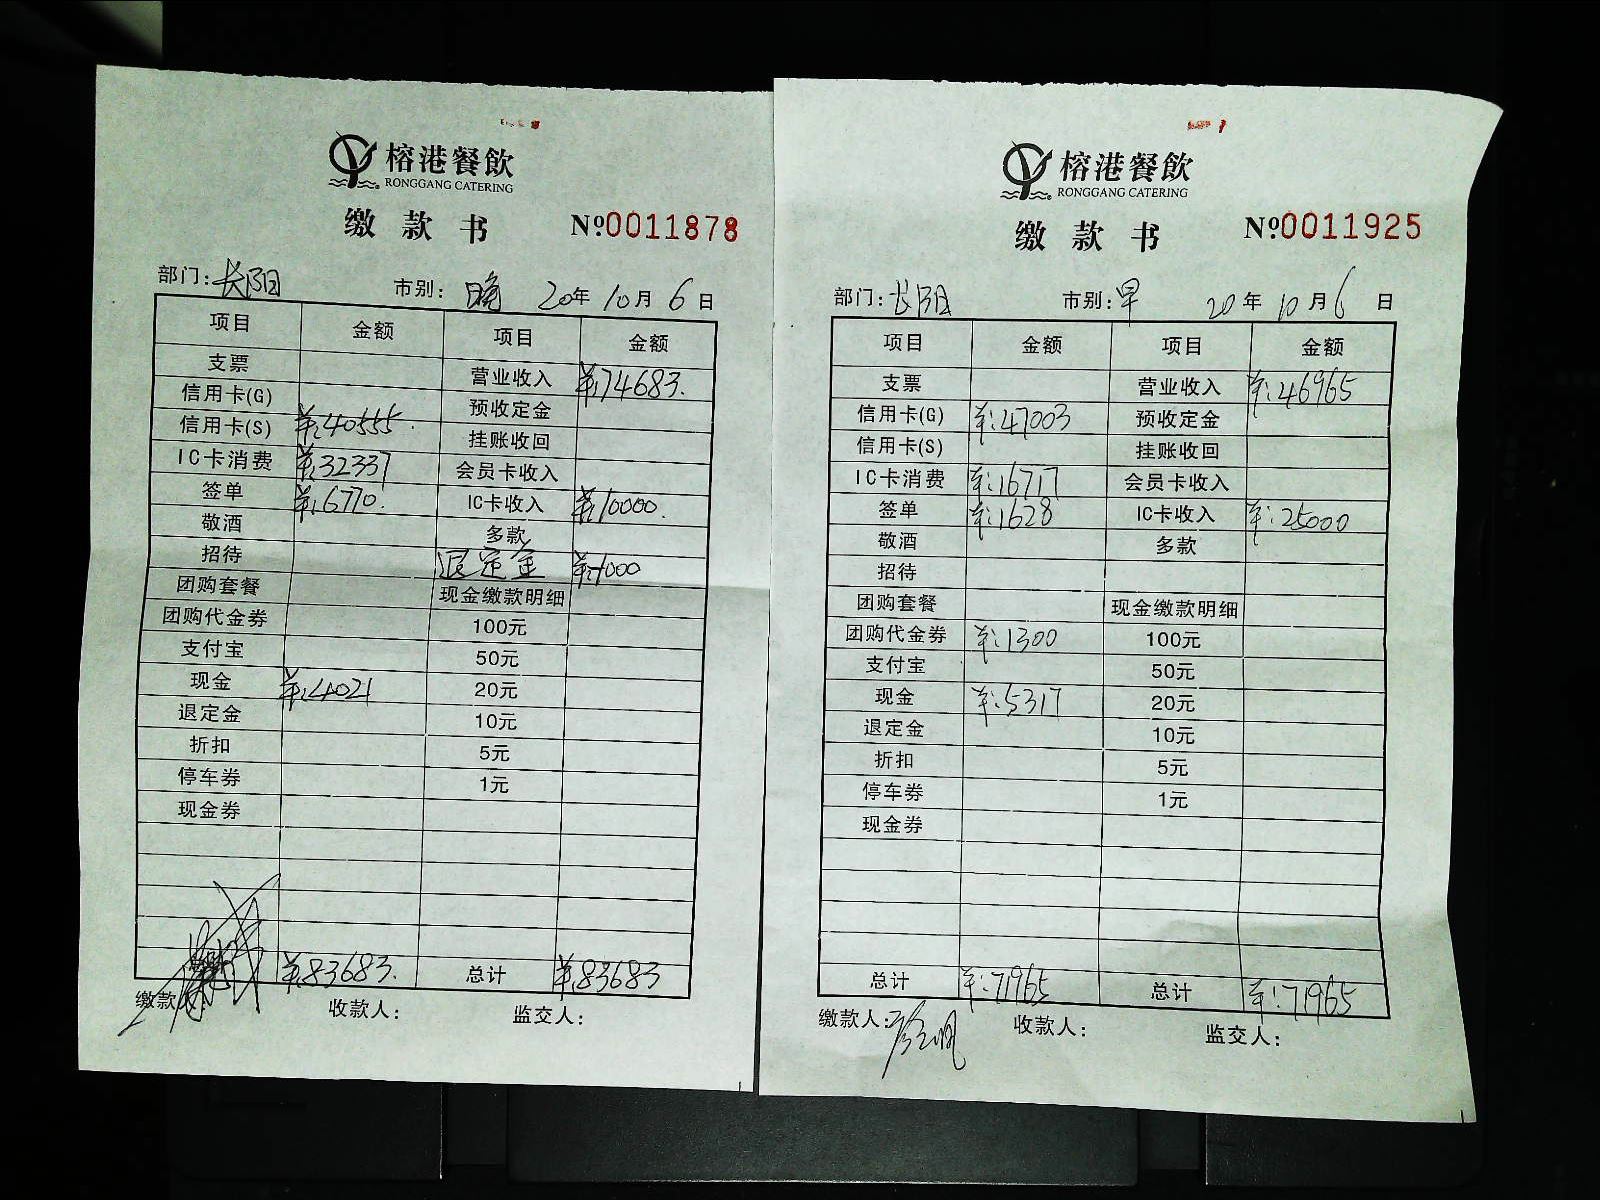 榕港餐飲
RONGGANG CATERING
缴款书 №0011878
部门：长阳 市别：晚 20年10月6日
项目 金额 项目 金额
支票 营业收入 ¥:74683.
信用卡(G) 预收定金
信用卡(S) ¥:40555. 挂账收回
IC卡消费 ¥:32337 会员卡收入
签单 ¥:6770. IC卡收入 ¥:10000.
敬酒 多款
招待 退定金 ¥:-1000
团购套餐 现金缴款明细
团购代金券 100元
支付宝 50元
现金 ¥:4021 20元
退定金 10元
折扣 5元
停车券 1元
现金券
¥:83683. 总计 ¥:83683
缴款 收款人： 监交人：
榕港餐飲
RONGGANG CATERING
缴款书 №0011925
部门：长阳 市别：早 20年10月6日
项目 金额 项目 金额
支票 营业收入 ¥:46965
信用卡(G) ¥:47003 预收定金
信用卡(S) 挂账收回
IC卡消费 ¥:16717 会员卡收入
签单 ¥:1628 IC卡收入 ¥:25000
敬酒 多款
招待
团购套餐 现金缴款明细
团购代金券 ¥:1300 100元
支付宝 50元
现金 ¥:5317 20元
退定金 10元
折扣 5元
停车券 1元
现金券
总计 ¥:71965 总计 ¥:71965
缴款人： 收款人： 监交人：